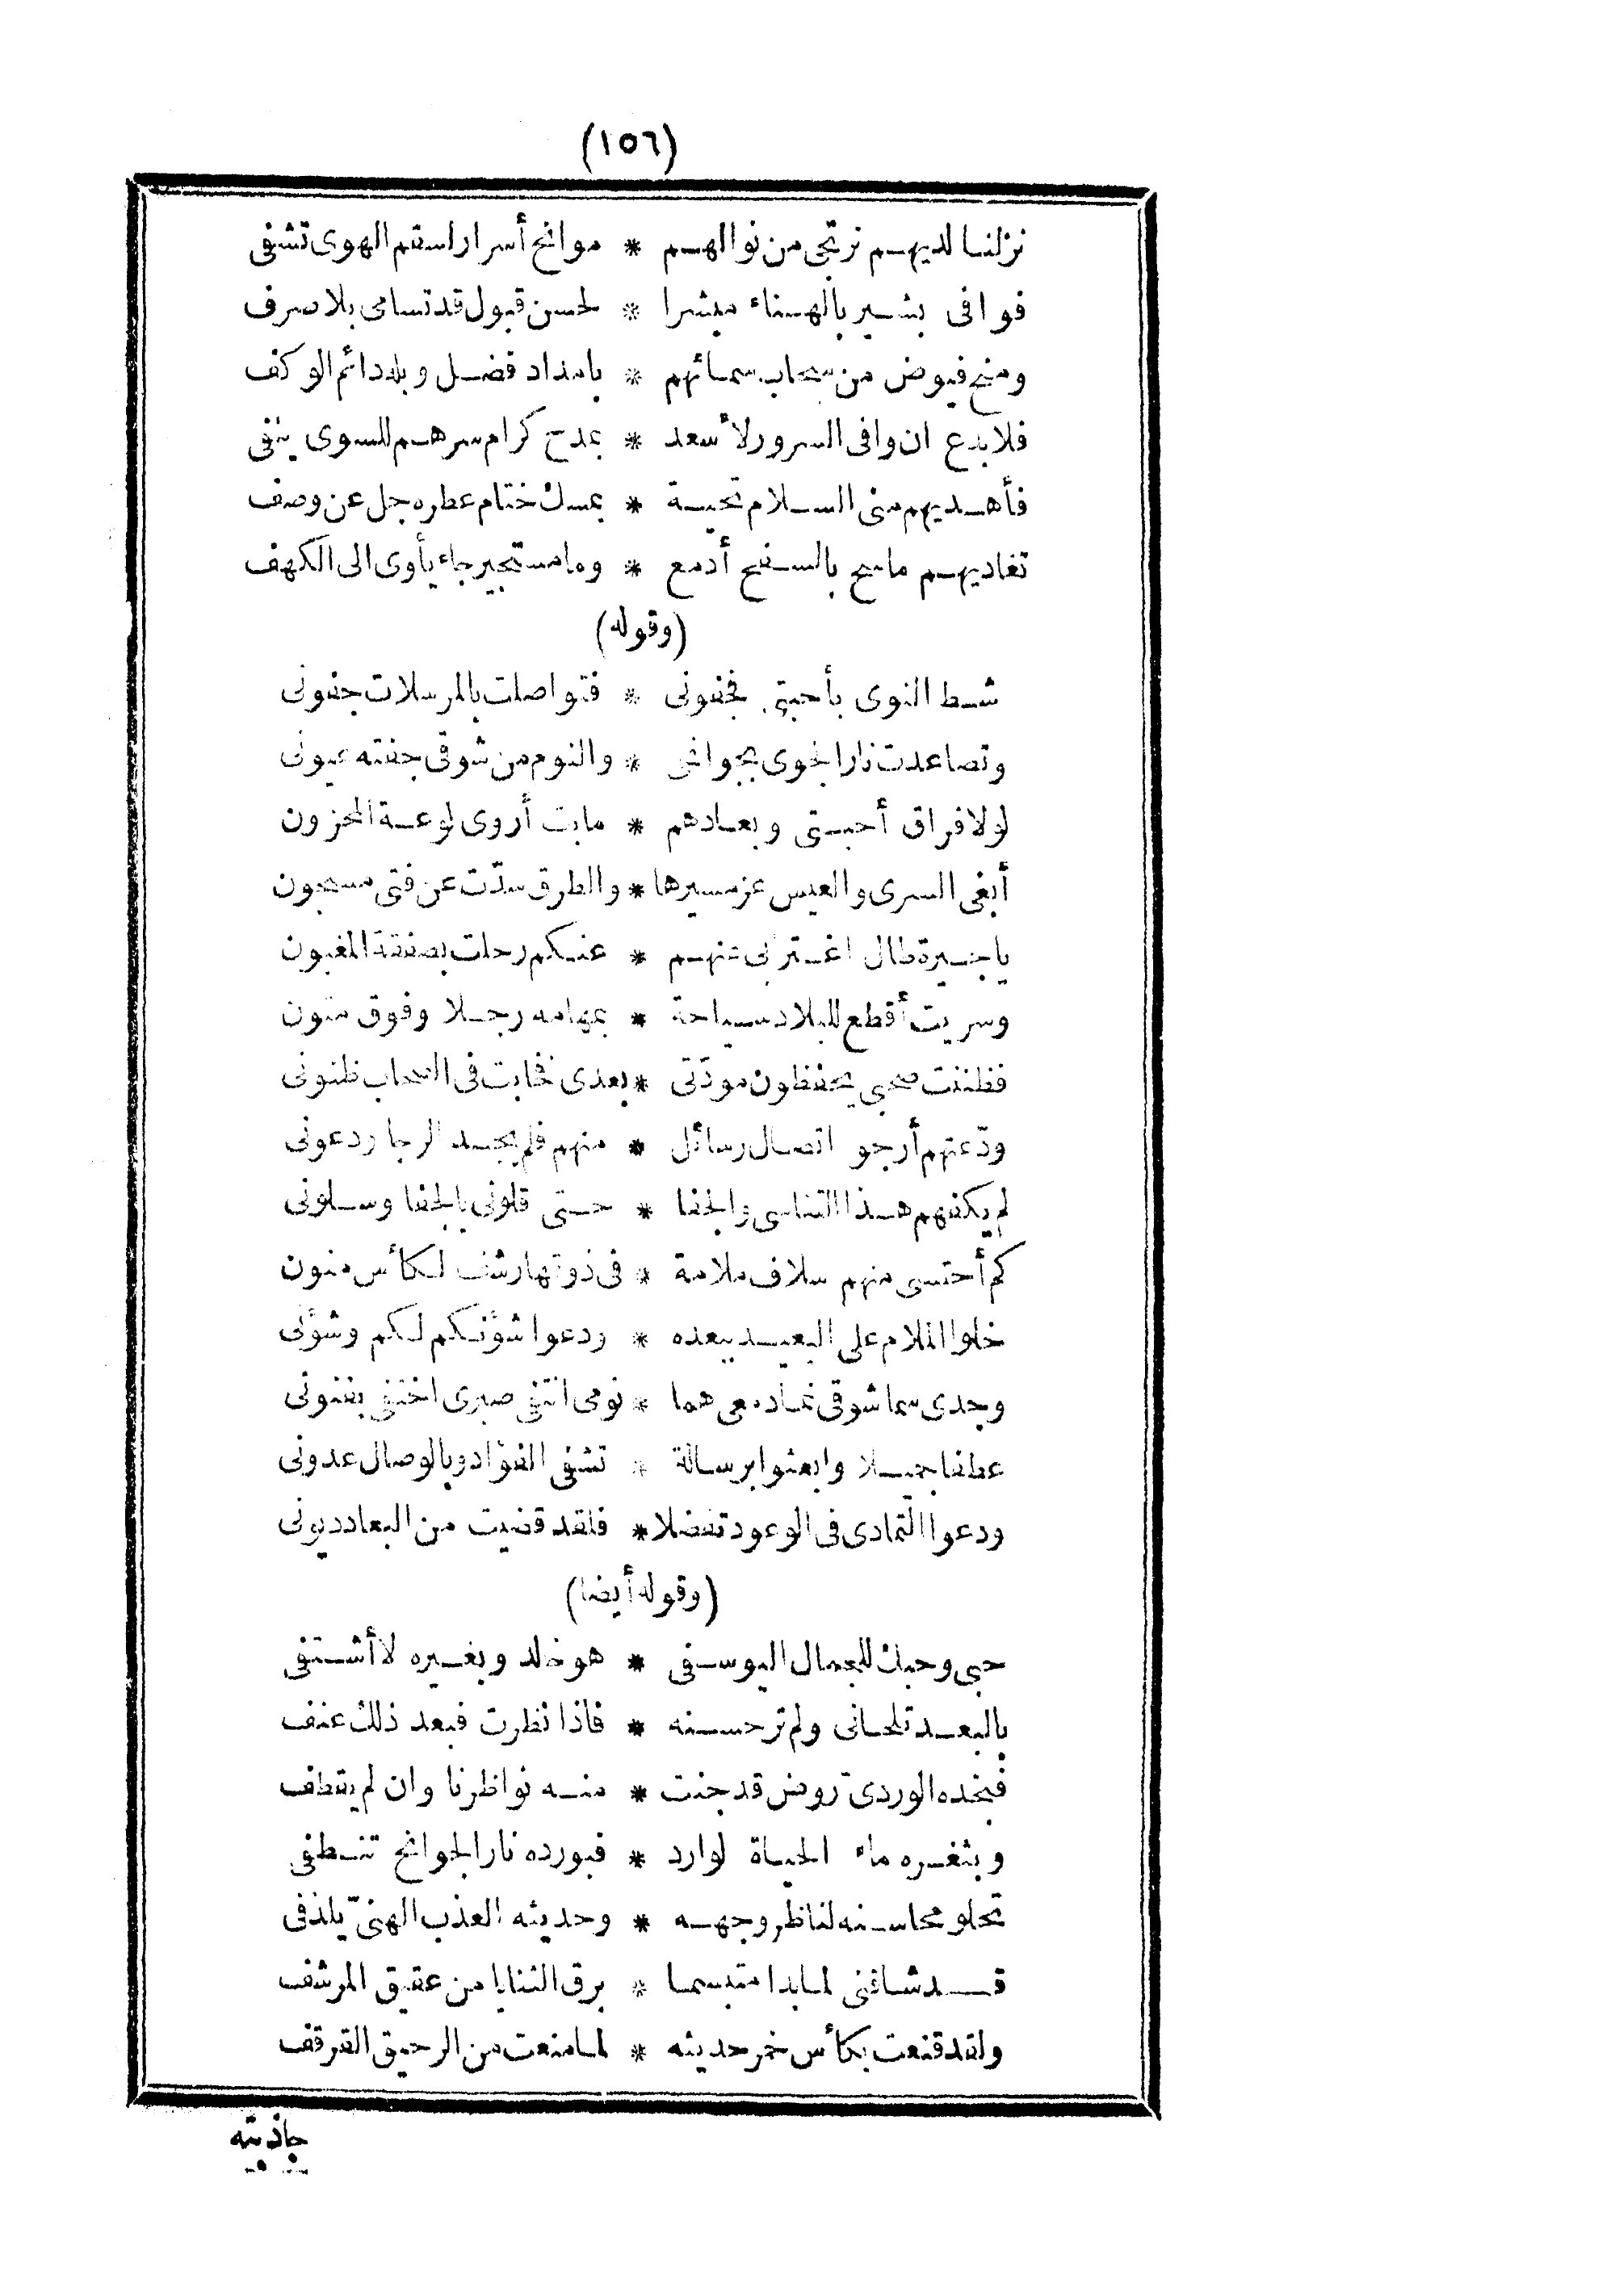 (١٥٦)
نزلنا لديهم نرتجى من نوالهم * موانح أسرار لسقم الهوى تشفى
فوافى بشير بالهناء مبشرا * لحسن قبول قد تسامى بلا صرف
ومنح فيوض من سحاب سمائهم * بامداد فضل وبله دائم الوكف
فلا بدع ان وافى السرور لأسعد * بمدح كرام سرهم للسوى ينفى
فأهديهم منى السلام تحية * بمسك ختام عطره جل عن وصف
تغاديهم ما سح بالسفح أدمع * وما مستجير جاء يأوى الى الكهف
(وقوله)
شط النوى بأحبتى فجفونى * فتواصلت بالمرسلات جفونى
وتصاعدت نار الجوى بجوانحى * والنوم من شوقى جفته عيونى
لولا فراق أحبتى وبعادهم * ما بت أروى لوعة المحزون
أبغى السرى والعيس عز مسيرها * والطرق سدّت عن فتى مسجون
يا جيرة طال اغترابى عنهم * عنكم رحلت بصفقة المغبون
وسريت أقطع للبلاد سياحة * بمهامه رجلا وفوق متون
فظننت صحبى يحفظون مودّتى * بعدى فخابت فى الصحاب ظنونى
ودّعتهم أرجو اتصال رسائل * منهم فلم يجد الرجا ردعونى
لم يكفهم هذا التناسى والجفا * حتى قلونى بالجفا وسلونى
كم أحتسى منهم سلاف ملامة * فى ذوقها رشف لكأس منون
خلوا الملام على البعيد ببعده * ودعوا شؤنكم لكم وشؤنى
وجدى سما شوقى نما دمعى هما * نومى انتفى صبرى اختفى بفنونى
عطفا جميلا وابعثوا برسالة * تشفى الفؤاد وبالوصال عدونى
ودعوا التمادى فى الوعود تفضلا * فلقد قضيت من البعاد ديونى
(وقوله أيضا)
حبى وحبك للجمال اليوسفى * هو خالد وبغيره لا أشتفى
بالبعد تلحانى ولم تر حسنه * فاذا نظرت فبعد ذلك عنف
فبخده الوردىّ روض قد جنت * منه نواظرنا وان لم يقطف
وبثغره ماء الحياة لوارد * فبورده نار الجوانح تنطفى
تحلو محاسنه لناظر وجهه * وحديثه العذب الهنىّ يلذ فى
قد شاقنى لما بدا متبسما * برق الثنايا من عقيق المرشف
ولقد قنعت بكأس خمر حديثه * لما منعت من الرحيق القرقف
جاذبته